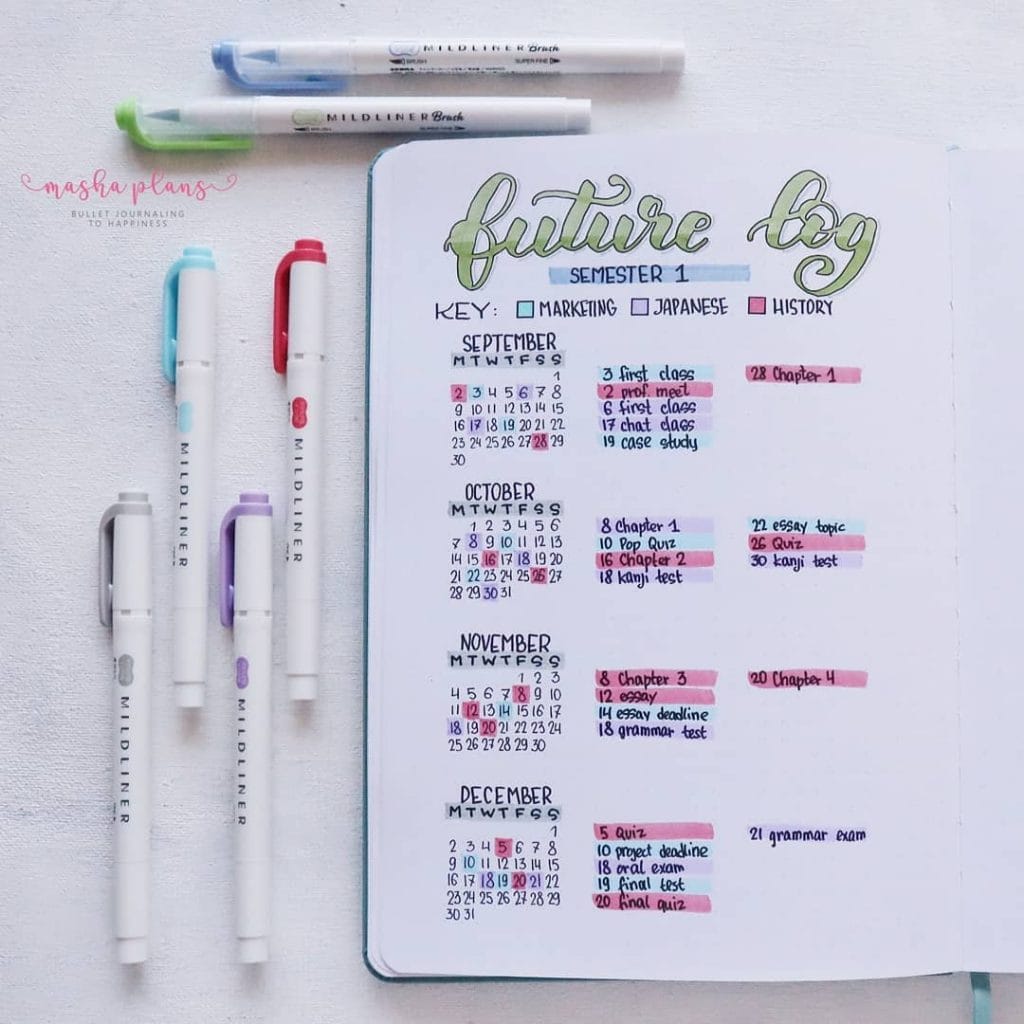 MILDLINER Brush
BRUSH SUPER FINE
MILDLINER Brush
BRUSH SUPER FINE
masha plans
BULLET JOURNALING
TO HAPPINESS
MILDLINER
MILDLINER
MILDLINER
MILDLINER
future log
SEMESTER 1
KEY: MARKETING JAPANESE HISTORY
SEPTEMBER
M T W T F S S
1
2 3 4 5 6 7 8
9 10 11 12 13 14 15
16 17 18 19 20 21 22
23 24 25 26 27 28 29
30
3 first class
2 prof. meet
6 first class
17 chat class
19 case study
28 Chapter 1
OCTOBER
M T W T F S S
1 2 3 4 5 6
7 8 9 10 11 12 13
14 15 16 17 18 19 20
21 22 23 24 25 26 27
28 29 30 31
8 Chapter 1
10 Pop Quiz
16 Chapter 2
18 kanji test
22 essay topic
26 Quiz
30 kanji test
NOVEMBER
M T W T F S S
1 2 3
4 5 6 7 8 9 10
11 12 13 14 15 16 17
18 19 20 21 22 23 24
25 26 27 28 29 30
8 Chapter 3
12 essay
14 essay deadline
18 grammar test
20 Chapter 4
DECEMBER
M T W T F S S
1
2 3 4 5 6 7 8
9 10 11 12 13 14 15
16 17 18 19 20 21 22
23 24 25 26 27 28 29
30 31
5 Quiz
10 project deadline
18 oral exam
19 final test
20 final quiz
21 grammar exam